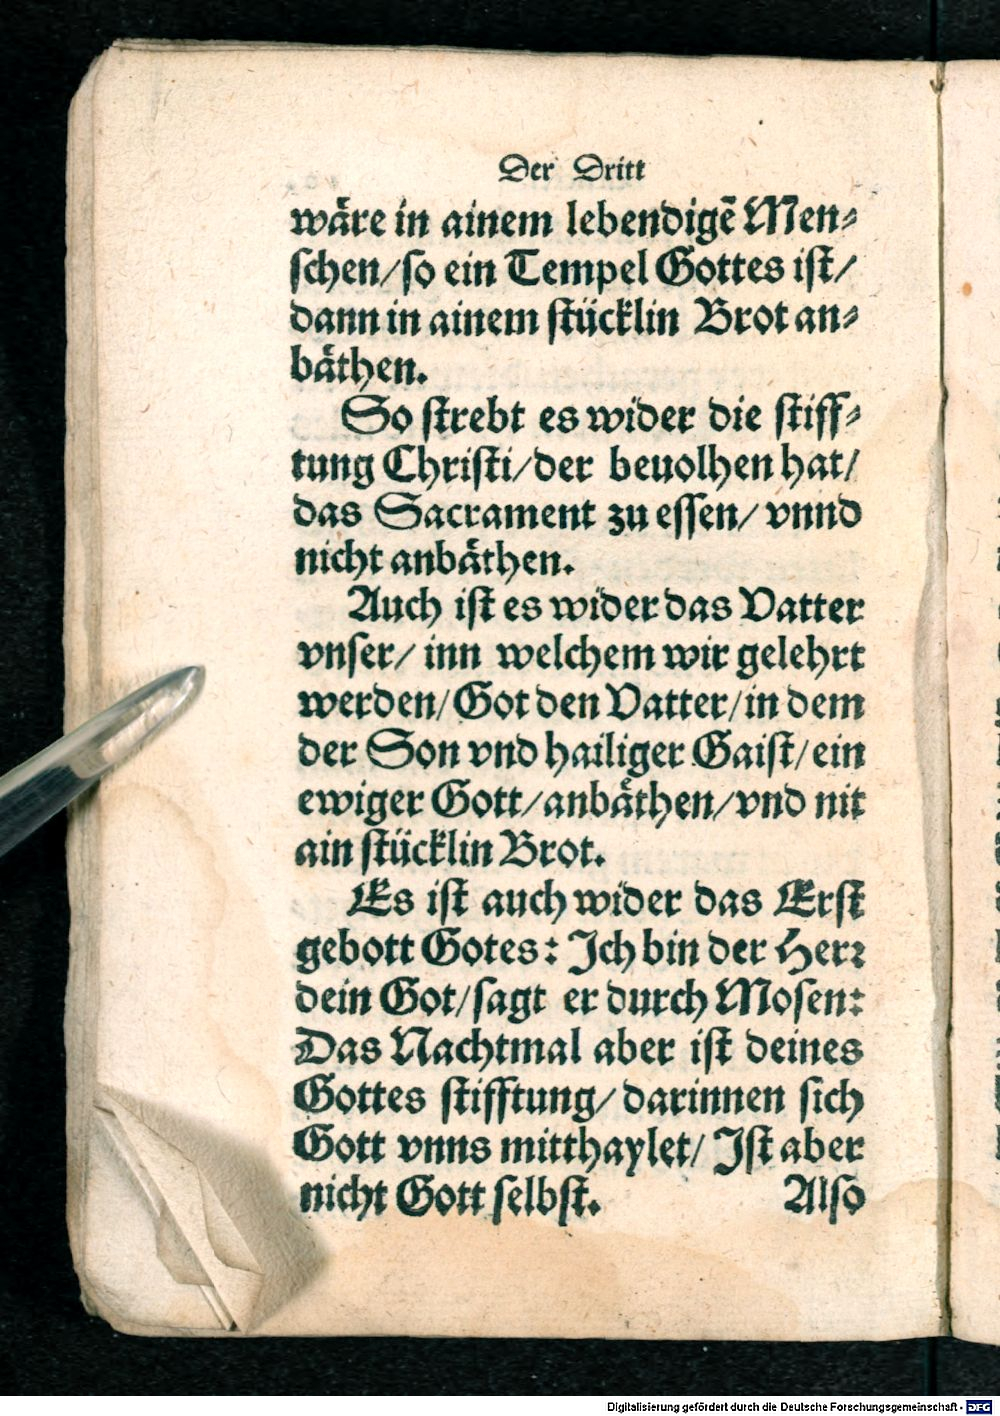 Der Dritt
wåre in ainem lebendigẽ Men⸗
schen/so ein Tempel Gottes ist/
dann in ainem stücklin Brot an⸗
båthen.
So strebt es wider die stiff⸗
tung Christi/der beuolhen hat/
das Sacrament zu essen/ vnnd
nicht anbåthen.
Auch ist es wider das Vatter
vnser/ inn welchem wir gelehrt
werden/Got den Vatter/in dem
der Son vnd hailiger Gaist/ein
ewiger Gott/anbåthen/vnd nit
ain stücklin Brot.
Es ist auch wider das Erst
gebott Gotes: Ich bin der Herꝛ
dein Got/sagt er durch Mosen:
Das Nachtmal aber ist deines
Gottes stifftung/darinnen sich
Gott vnns mitthaylet/ Ist aber
nicht Gott selbst. Also
Digitalisierung gefördert durch die Deutsche Forschungsgemeinschaft - DFG